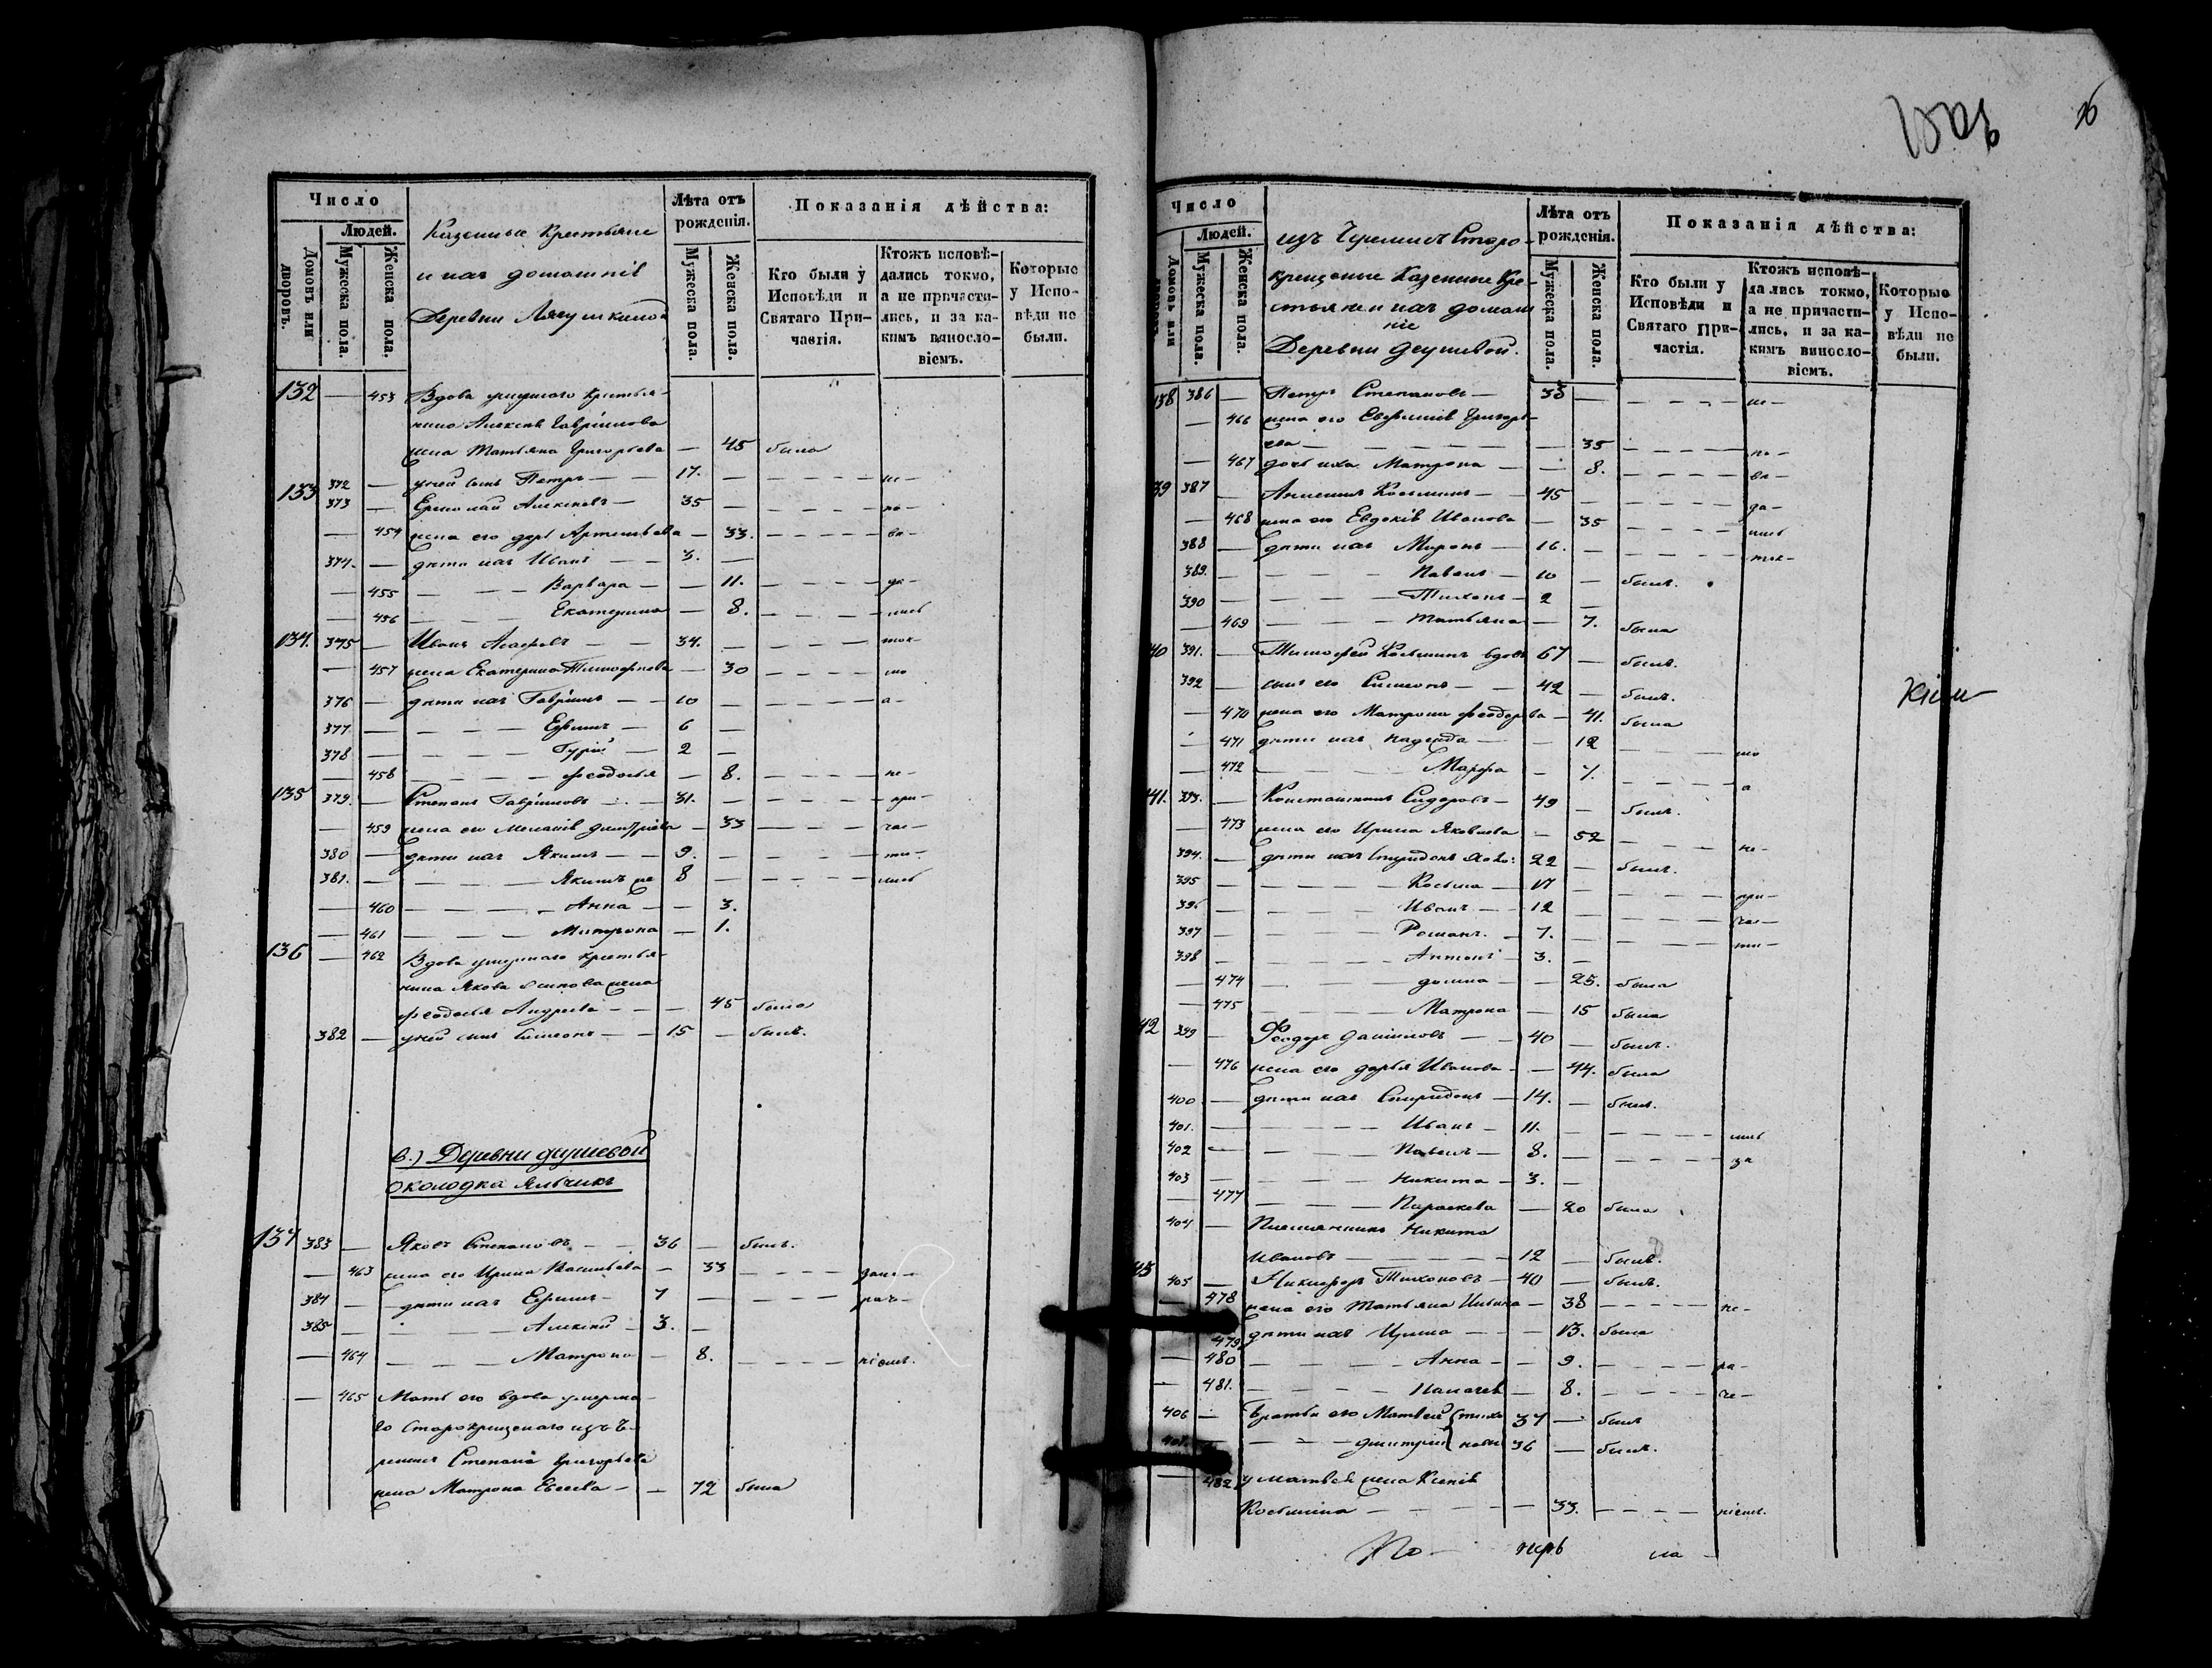 Число
Людей.
Домовъ или дворовъ.
Мужеска пола.
Женска пола.
Казенные крестьяне
и ихъ домашнiе
Деревни
Лѣта отъ рожденія.
Мужеска пола.
Женска пола.
Показанія дѣйства:
Кто были у Исповѣди и Святаго Причастія.
Ктожъ исповѣдались токмо, а не причастились, и за какимъ винословіемъ.
Которые у Исповѣди не были.
132 — 453 Вдова умершаго крестья-
нина Алексѣя Гаврiилова
жена Татьяна Григорьева — 45 была
372 — у ней сынъ Петръ — — 17. —
133 373 — Ермолай Алексѣевъ — 35 —
— 454 жена его Дарья Артемьева — 33.
374. — дѣти ихъ Иванъ — — 3. —
— 455 — — — Варвара — — 11.
— 456 — — — Екатерина — 8. — лись
134. 375 — Иванъ — — 34. — ток-
— 457 жена Екатерина Тимофеева — 30 — мо
376 — дѣти ихъ Гаврiилъ — — 10 — а-
377. — — — Ефимъ — 6 —
378 — — — Гурiй — 2 —
— 458 — — — Феодосья — 8. — не-
135 379. — Степанъ Гаврiиловъ — 31. — при-
— 459 жена его Меланiя Димитрiева — 33 — час-
380 — дѣти ихъ Якимъ — — 9. — ти-
381. — — — Якимъ же 8 — лись
— 460 — — — Анна — — 3.
— 461 — — — Матрона — 1.
136 — 462 Вдова умершаго крестья-
нина Якова Осипова жена
Феодосья Андреева — — — 45 была
382 — у ней сынъ Симеонъ — — 15 — былъ.
в.) Деревни Душевой
околодка Яльчикъ
137 383 — Яковъ Степановъ — — 36 — былъ.
— 463 жена его Ирина Васильева — 33
384 — дѣти ихъ Ефимъ — 7 —
385 — — — Алексѣй — 3. —
— 464 — — — Матрона — 8.
— 465 Мать его вдова умерша-
го Старокрещенаго изъ Че-
ремисъ Степана Григорьева
жена Матрона Евсеева — — 72 была
26
Число
Людей.
Домовъ или дворовъ.
Мужеска пола.
Женска пола.
изъ Черемисъ Старо-
крещеные Казенные Кре-
стьяне и ихъ домаш
нiе
Деревни Душевой.
Лѣта отъ рожденія.
Мужеска пола.
Женска пола.
Показанія дѣйства:
Кто были у Исповѣди и Святаго Причастія.
Ктожъ исповѣдались токмо, а не причастились, и за какимъ винословіемъ.
Которые у Исповѣди не были.
138 386 — Петръ Степановъ — 33 — ис-
— 466 жена его Григорь-
ева — — 35 — по-
— 467 дочь ихъ Матрона — — 8. — вѣ-
39 387 — Косьминъ — 45 — да-
— 468 жена его Евдокiя Иванова — 35 — лись
388 — дѣти ихъ Миронъ — 16. — ток-
389. — — — Павелъ — 10 — былъ.
390 — — — Тихонъ — 2 —
— 469 — — — Татьяна — 7. была
40 391. — Тимофей Косьминъ вдовъ 67 — былъ.
392 — сынъ его Симеонъ — — 42 — былъ.
— 470 жена его Матрона Феодорова — 41. была
— 471 дѣти ихъ Надежда — — 12 — мо
— 472 — — — Марфа — 7. — а
41. 393. — Константинъ Сидоровъ — 49 — былъ.
— 473 жена его Ирина Яковлева — 52 — не-
394. — дѣти ихъ Спиридонъ 22 — былъ.
395 — — — Косьма — 17 — при-
396 — — — Иванъ — 12 — час-
397 — — — Романъ. — 7. — ти-
398 — — — Антонъ — 3. —
— 474 — — Домна — — 25. была
— 475 — — Матрона — 15 была
42 399 — Феодоръ Данiиловъ — — 40 — былъ.
— 476 жена его Дарья Иванова — — 44. была
400 — дѣти ихъ Спиридонъ — 14. — былъ.
401. — — — Иванъ — 11. — лись
402 — — — Павелъ — 8. — за
403 — — — Никита — 3. —
— 477 — — Параскева — 20 была
404 — Племянникъ Никита
Ивановъ — 12 — былъ.
43 405 — Никифоръ Тихоновъ — 40 — былъ.
— 478 жена его Татьяна — 38 — не-
479 дѣти ихъ Ирина — — 13. была
— 480 — — — Анна — — 9. — ра-
— 481. — — — — 8. — че-
406 — братья его Матвей 37 — былъ
407. — — — Димитрий 36 — былъ.
— 482 у Матвея жена Ксенiя
Косьмина — 33. — нiемъ.